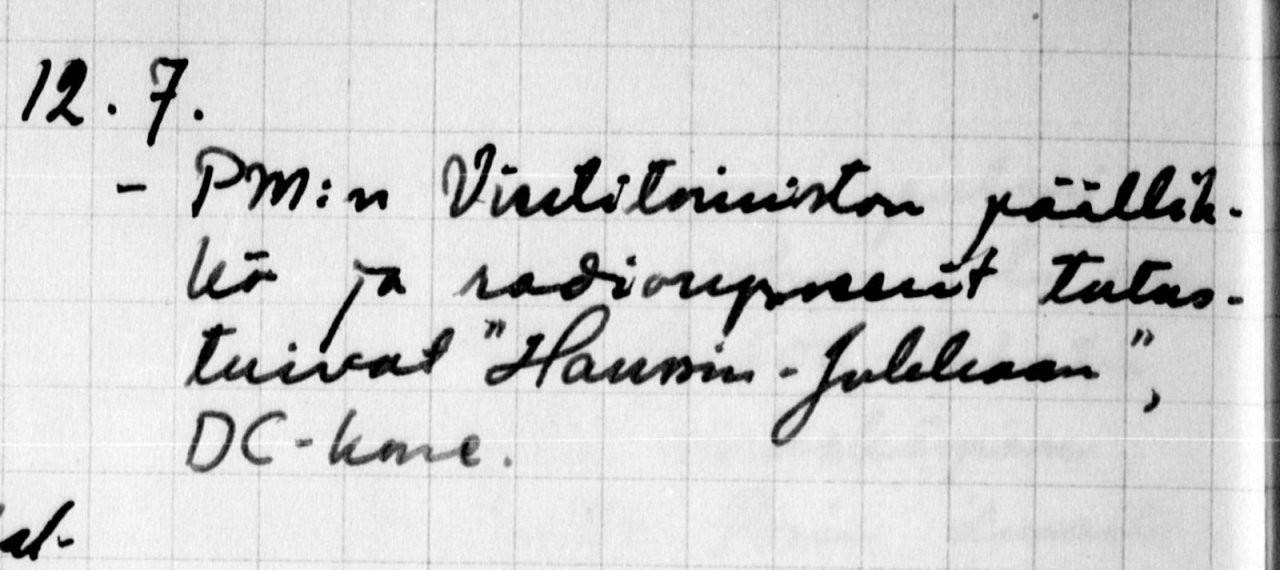 12.7.
- PM:n Viestitoimiston päällik-
kö ja radioupseerit tutus-
tuivat "Hanssin-Jukkaan",
DC-kone.
al-